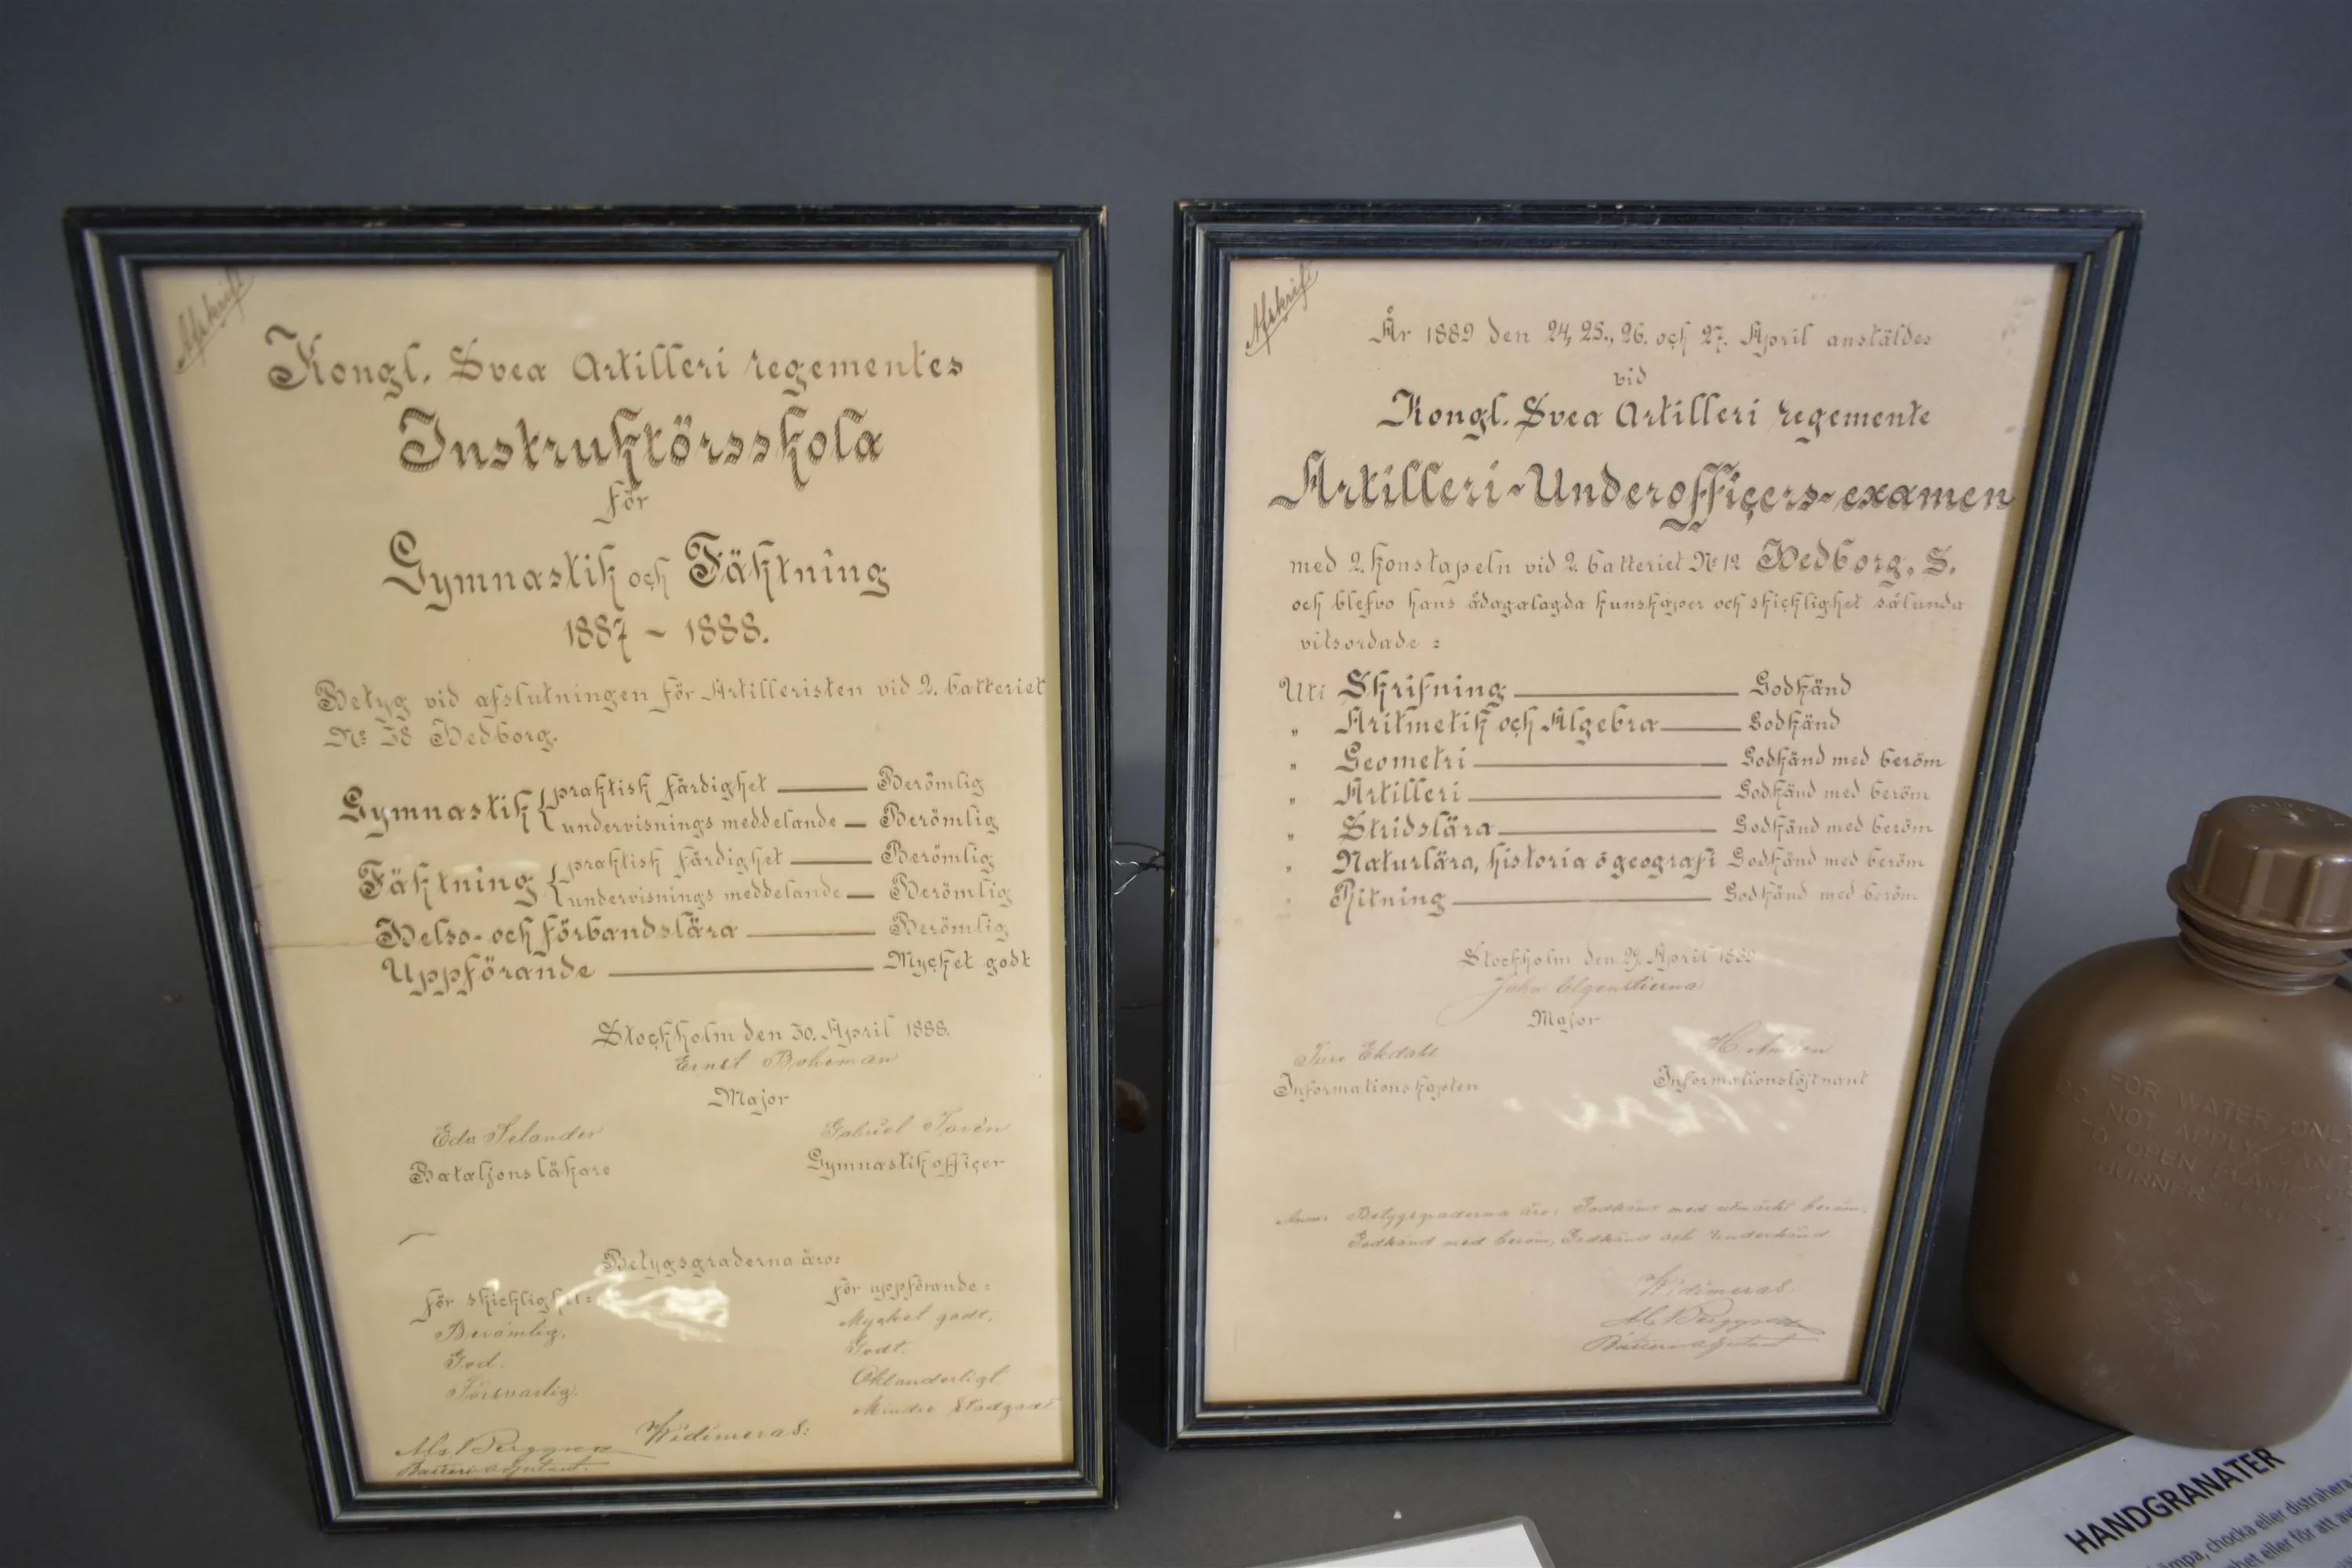 Afskrift
Kongl. Svea Artilleri regementes
Instruktörsskola
för
Gymnastik och Fäktning
1887 ~ 1888.
Betyg vid afslutningen för Artilleristen vid 2. batteriet
No 38 Hedborg.
Gymnastik { praktisk färdighet — Berömlig
undervisnings meddelande — Berömlig
Fäktning { praktisk färdighet — Berömlig
undervisnings meddelande — Berömlig
Helso- och förbandslära — Berömlig
Uppförande — Mycket godt
Stockholm den 30. April 1888.
Ernst Boheman
Major
Edv Selander
Bataljonsläkare
Gabriel Torén
Gymnastikofficer
Betygsgraderna äro:
för skicklighet:
Berömlig.
God.
Försvarlig.
för uppförande:
Mycket godt.
Godt.
Oklanderligt.
Mindre stadgadt
Widimeras:
Berggren
Batteriadjutant.
Afskrift
År 1889 den 24, 25., 26. och 27. April anstäldes
vid
Kongl. Svea Artilleri regemente
Artilleri-Underofficers-examen
med 2. konstapeln vid 2. batteriet No 12 Hedborg. S.
och blefvo hans ådagalagda kunskaper och skicklighet sålunda
vitsordade:
Uti Skrifning — Godkänd
" Aritmetik och Algebra — Godkänd
" Geometri — Godkänd med beröm
" Artilleri — Godkänd med beröm
" Stridslära — Godkänd med beröm
" Naturlära, historia o geografi Godkänd med beröm
" Ritning — Godkänd med beröm
Stockholm den 27. April 1889
John Elgenstierna
Major
Ture Ekdahl
Informationskapten
H.
Informationslöjtnant
Anm: Betygsgraderna äro: Godkänd med utmärkt beröm,
Godkänd med beröm, Godkänd och Underkänd
Widimeras.
Berggren
Batteriadjutant
FOR WATER ONLY
NOT APPLY CAN
TO OPEN FLAME O
BURNER PLATE
HANDGRANATER
chocka eller distrahera
eller för att